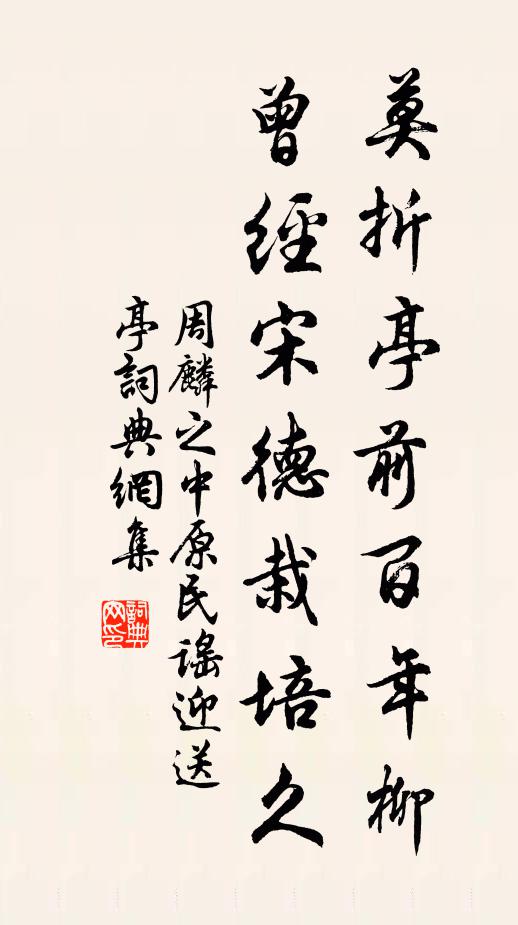 莫折亭前百年柳
曾經宋德栽培久
周麟之中原民謠迎送
亭詞典網集
詞典網印